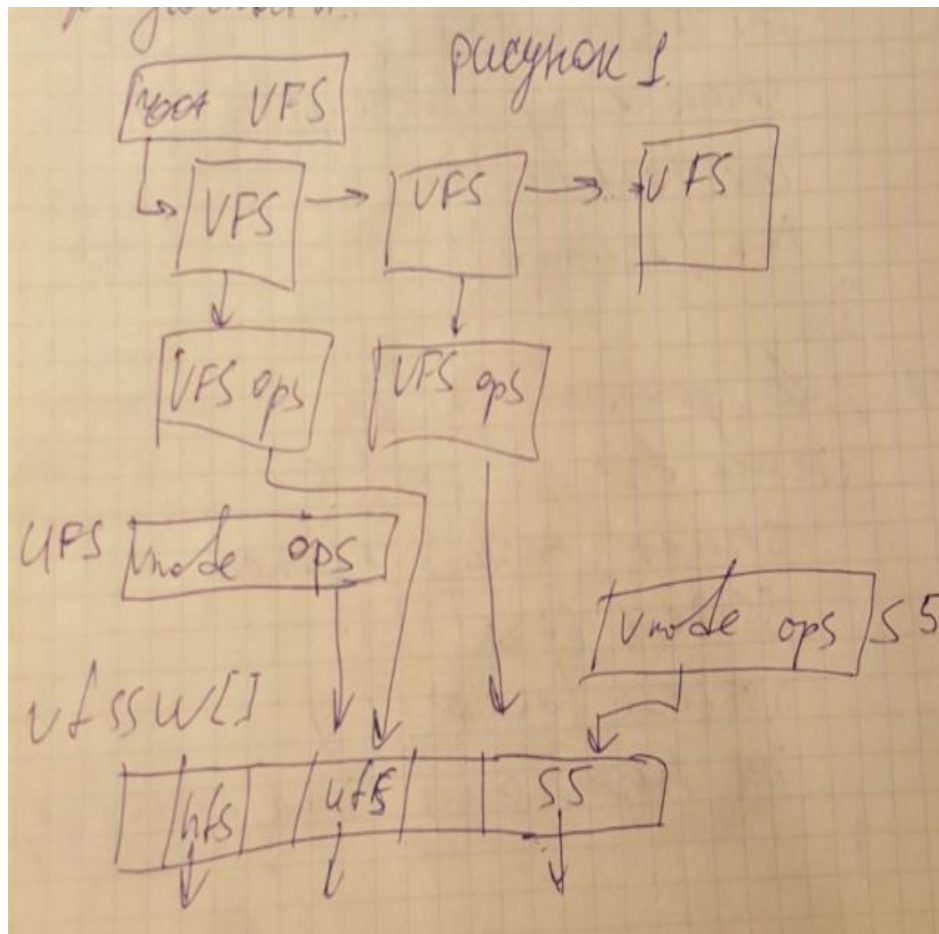 рисунок 1.
root VFS
VFS
VFS
VFS
VFS ops
VFS ops
UFS
vnode ops
vnode ops
S5
vfssw[]
hfs
ufs
S5